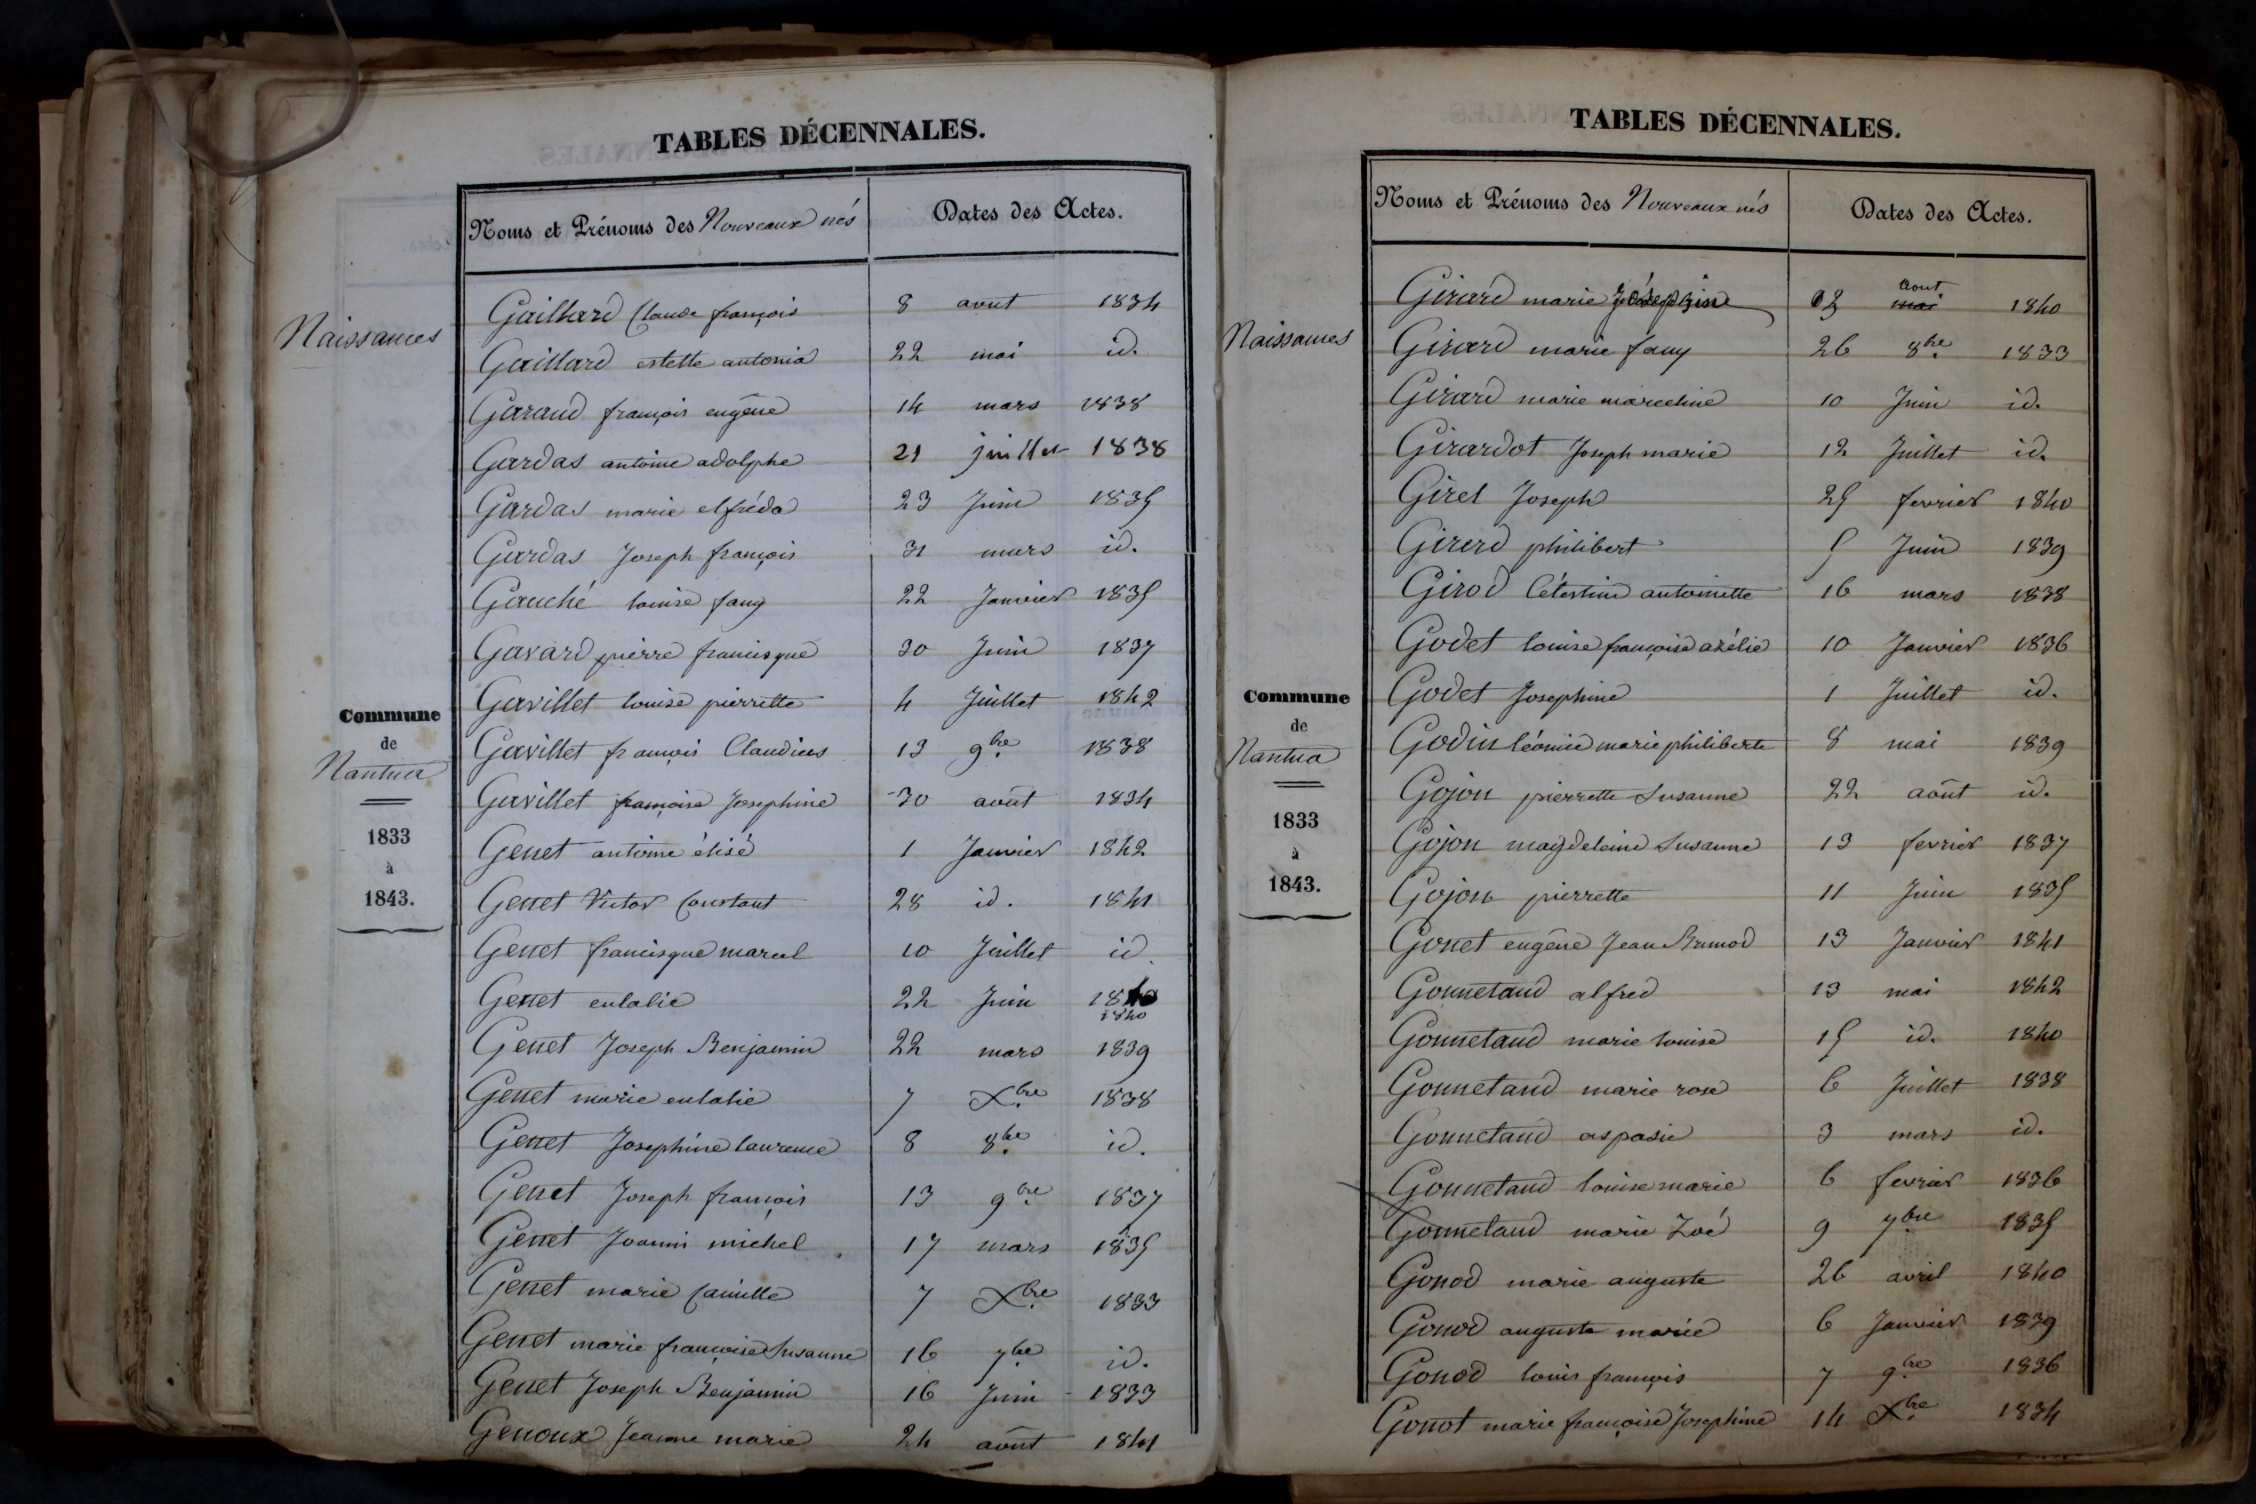 TABLES DÉCENNALES.
Noms et Prénoms des Nouveaux nés Dates des Actes.
Naissances
Commune
de
Nantua
1833
à
1843.
Gaillard Claude françois 8 aout 1834
Gaillard estelle antonia 22 mai id.
Garaud françois eugène 14 mars 1838
Gardas antoine adolphe 21 juillet 1838
Gardas marie elfréda 23 Juin 1835
Gardas Joseph françois 31 mars id.
Gauché louise fany 22 Janvier 1835
Gavard pierre francisque 30 Juin 1837
Gavillet louise pierrette 4 Juillet 1842
Gavillet françois Claudius 13 9bre 1838
Gavillet françoise Josephine 30 août 1834
Genet antoine élisé 1 Janvier 1842
Genet Victor Constant 28 id. 1841
Genet francisque marcel 10 Juillet id.
Genet eulalie 22 Juin 1840
1840
Genet Joseph Benjamin 22 mars 1839
Genet marie eulalie 7 Xbre 1838
Genet Josephine laurence 8 8bre id.
Genet Joseph françois 13 9bre 1837
Genet Joanni michel 17 mars 1835
Genet marie Camille 7 Xbre 1833
Genet marie françoise Susanne 16 7bre id.
Genet Joseph Benjamin 16 Juin 1833
Genoux Jeanne marie 24 août 1841
TABLES DÉCENNALES.
Noms et Prénoms des Nouveaux nés Dates des Actes.
Naissances
Commune
de
Nantua
1833
à
1843.
aout
Girard marie Joséphine 02 mai 1840
Girard marie fany 26 8bre 1833
Girard marie marceline 10 Juin id.
Girardot Joseph marie 12 Juillet id.
Girel Joseph 25 fevrier 1840
Girerd philibert 5 Juin 1839
Girod Célestine antoinette 16 mars 1838
Godet louise françoise azélie 10 Janvier 1836
Godet Josephine 1 Juillet id.
Godin léonie marie philiberte 8 mai 1839
Gojon pierrette Susanne 22 août id.
Gojon magdeleine Susanne 13 fevrier 1837
Gojon pierrette 11 Juin 1835
Gonet eugène Jean Brunod 13 Janvier 1841
Gonnetand alfred 13 mai 1842
Gonnetand marie louise 15 id. 1840
Gonnetand marie rose 6 Juillet 1838
Gonnetand aspasie 3 mars id.
Gonnetand louise marie 6 fevrier 1836
Gonnetand marie Zoé 9 7bre 1835
Gonod marie auguste 26 avril 1840
Gonod auguste marie 6 Janvier 1839
Gonod louis françois 7 9bre 1836
Gonot marie françoise Josephine 14 Xbre 1834